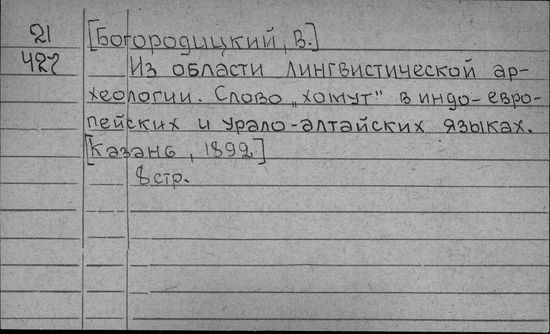 21
427
[Богородицкий, В.]
Из области лингвистической ар-
хеологии. Слово „хомут" в индо-евро-
пейских и урало-алтайских языках.
[Казань, 1892]
8 стр.